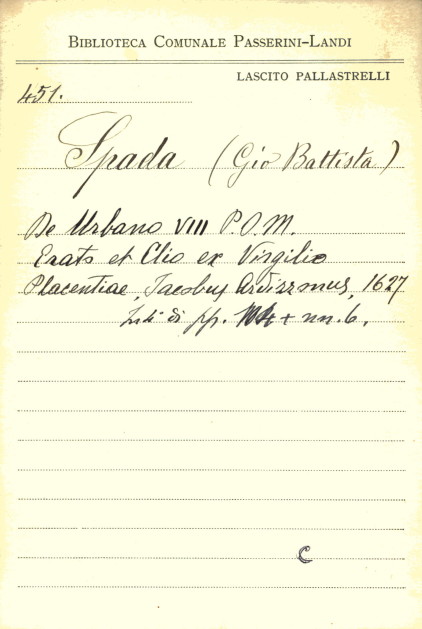 BIBLIOTECA COMUNALE PASSERINI-LANDI
LASCITO PALLASTRELLI
451.
Spada (Gio Battista)
De Urbano VIII P.O.M.
Erato et Clio ex Virgilio
Placentiae, Jacobus Ardizzonus, 1627
di pp. 104 + nn. 6.
C